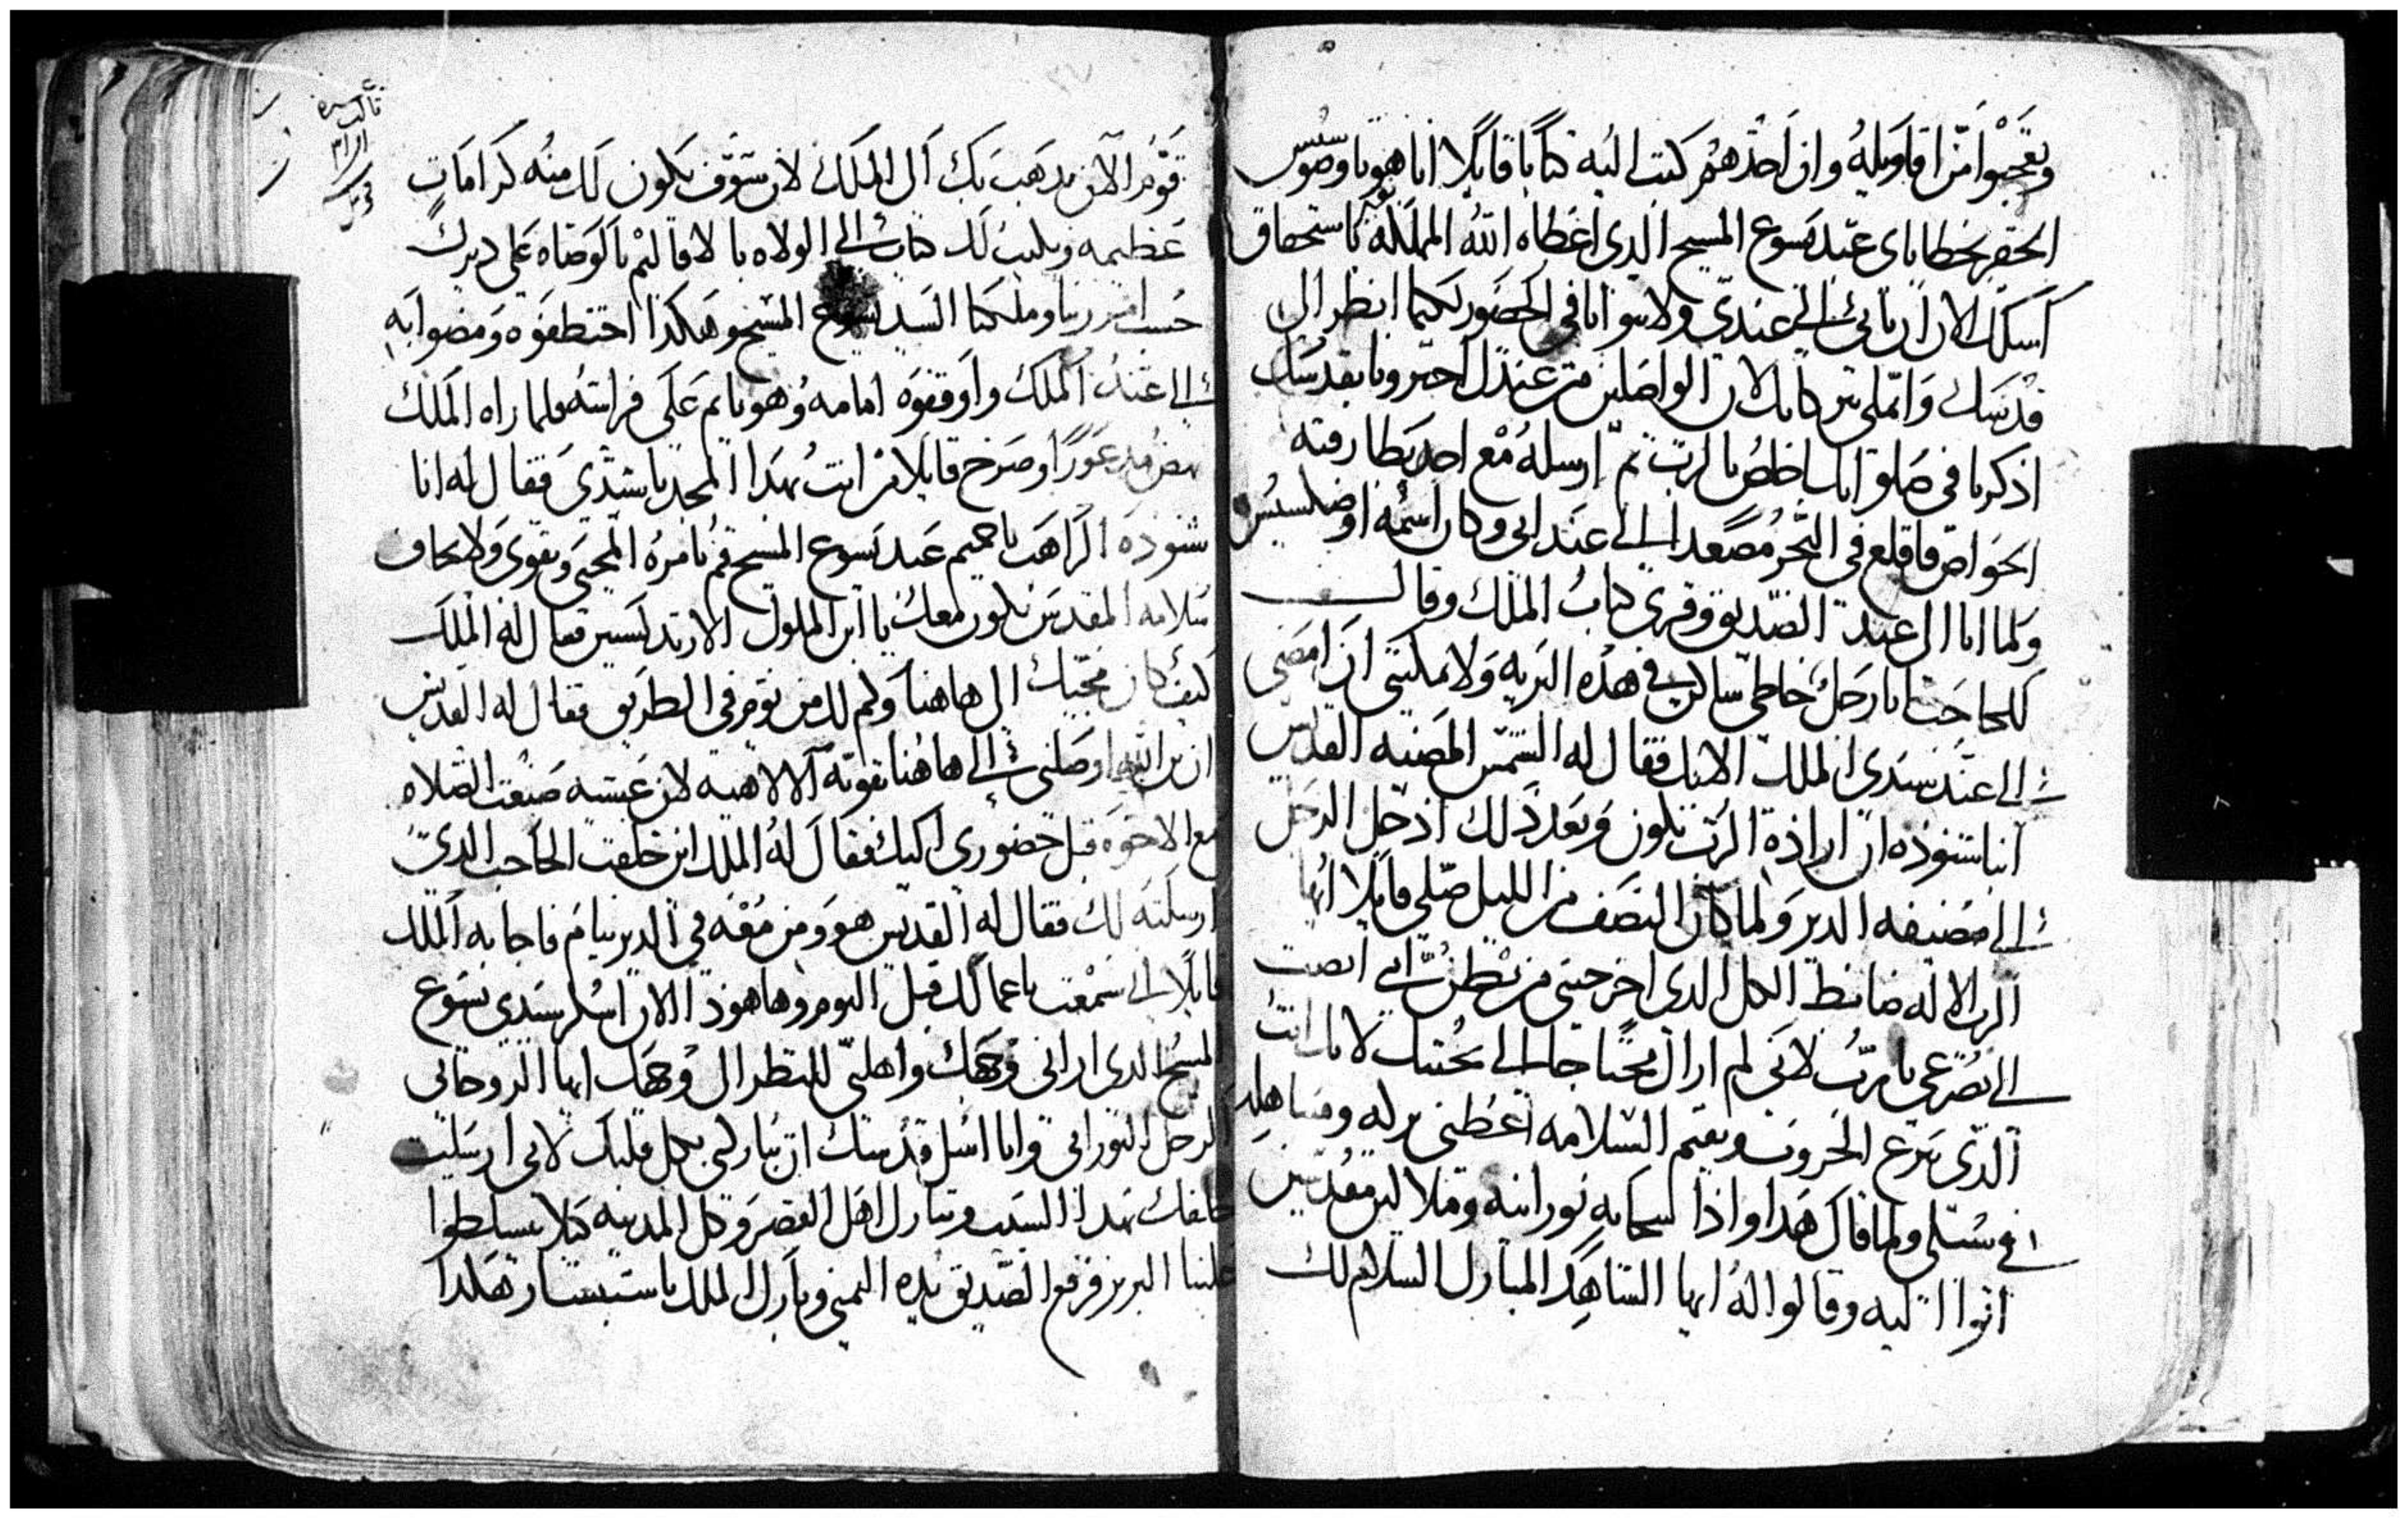 وتعجبوا من اقاويله وان احدهم كتب اليه كتابا قايلا انا هو تاوضوسيس
الحقير بخطاياى عبد يسوع المسيح الدى اعطاه الله المملكه كاستحقاق
اسلك الان ان تاتى الى عندى ولا تتوانا فى الحضور لكيما انظر الى
قدسك واتملى من بركاتك لان الواصلين من عندك اخبرونا بقدسك
اذكرنا فى صلواتك اخلص بالرب ثم ارسله مع احد بطارقته
الخواص فاقلع فى البحر مصعدا الى عند ابى وكان اسمه اوضكسيس
ولما اتا الى عند الصديق وقرى كتاب الملك وقال
للحاجب انا رجل خاطى ساكن فى هذه البريه ولا يمكننى ان امضى
الى عند سيدى الملك الابك فقال له الشمس المضيه القديس
انبا شنوده ان ارادة الرب تكون وبعد ذلك ادخل الرجل
الى مضيفه الدير ولما كان النصف من الليل صلى قايلا ايها
الرب الاله ضابط الكل الدى اخرجنى من بطن امى انصت
الى تضرعى يارب لاننى لم ازال محتاجا الى محبتك لانك انت
الدى ترع الحروب وتقيم السلامه اعطنى
فى سبلى ولما قال هدا واذا سحابه نورانيه وملايكه مقدسين
اتوا اليه وقالوا له ايها الشاهد المبارك السلام لك
قوم الان ندهب بك الى الملك لان سوف يكون لك منه كرامات
عظيمه ويكتب لك كتاب الى الولاه بالاقاليم بالوصاه على ديرك
حسب امر ربنا وملكنا السيد يسوع المسيح وهكدا اختطفوه ومضوا به
الى عند الملك واوقفوه امامه وهو نايم على فراشه ولما راه الملك
نهض مدعورا وصرخ قايلا من انت بهدا المجد يا سيدى فقال له انا
شنوده الراهب باخميم عبد يسوع المسيح قم يا مره المحبى وتقوى ولا تخاف
سلامه المقدسين تكون معك يا ابن الملوك الارتدكسيين فقال له الملك
كيف كان مجيك الى هاهنا وكم لك من يوم فى الطريق فقال له القديس
ان ابن الله اوصلنى الى هاهنا بقوته الالاهيه لان عشيه صنعت الصلاه
مع الاخوه قبل حضورى اليك فقال له الملك اين خلفت الحاجب الدى
ارسلته لك فقال له القديس هو ومن معه فى الدير نيام فاجابه الملك
قايلا انى سمعت باعمالك قبل اليوم وها هودا الان اشكر سيدى يسوع
المسيح الدى ارانى وجهك واهلنى للنظر الى وجهك ايها الروحانى
الرجل النورانى وانا اسل قدسك ان تباركنى بكل قلبك لانى ارسلت
خلفك بهدا السبب وتبارك اهل القصر وكل المدينه كيلا يتسلطوا
علينا البربر فرفع الصديق يده اليمنى وبارك الملك باستبشار هكدا